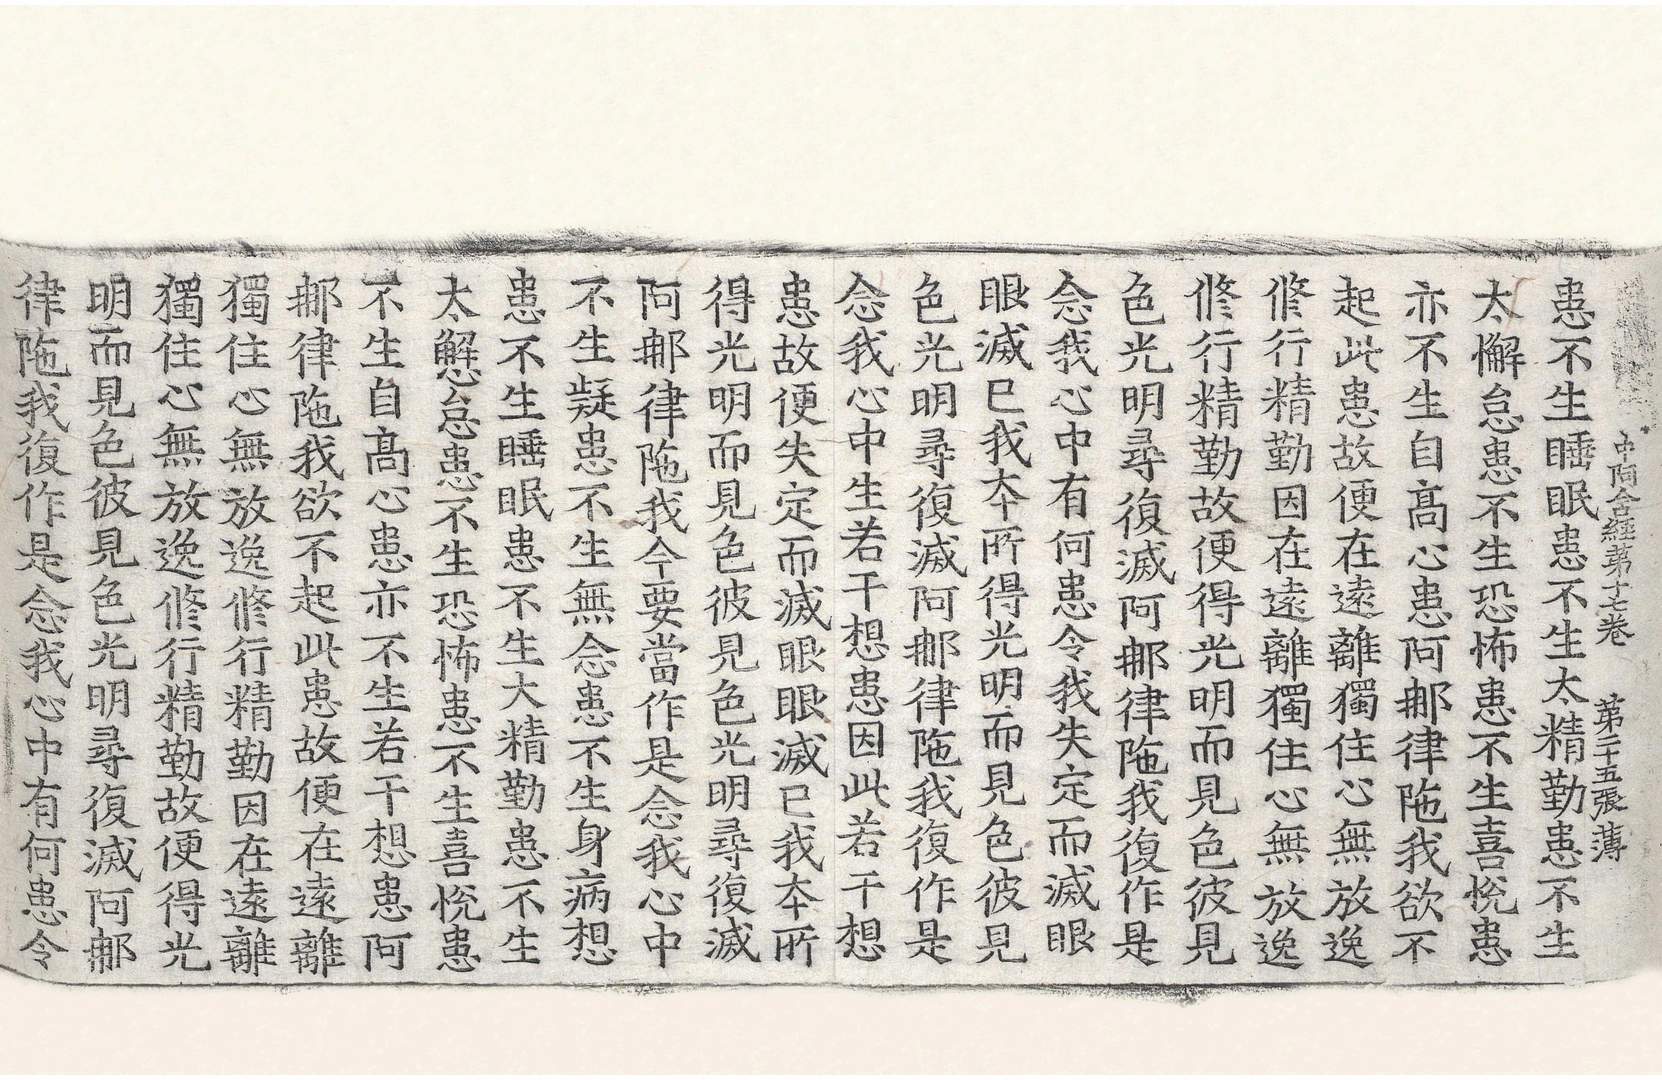 中阿含經第十七卷 第二十五張 薄
患不生睡眠患不生太精勤患不生
太懈怠患不生恐怖患不生喜悅患
亦不生自髙心患阿郍律陁我欲不
起此患故便在遠離獨住心無放逸
修行精勤因在遠離獨住心無放逸
修行精勤故便得光明而見色彼見
色光明尋復滅阿郍律陁我復作是
念我心中有何患令我失定而滅眼
眼滅已我夲所得光明而見色彼見
色光明尋復滅阿郍律陁我復作是
念我心中生若干想患因此若干想
患故便失定而滅眼眼滅已我夲所
得光明而見色彼見色光明尋復滅
阿郍律陁我今要當作是念我心中
不生疑患不生無念患不生身病想
患不生睡眠患不生大精勤患不生
太懈怠患不生恐怖患不生喜悅患
不生自髙心患亦不生若干想患阿
郍律陁我欲不起此患故便在遠離
獨住心無放逸修行精勤因在遠離
獨住心無放逸修行精勤故便得光
明而見色彼見色光明尋復滅阿郍
律陁我復作是念我心中有何患令